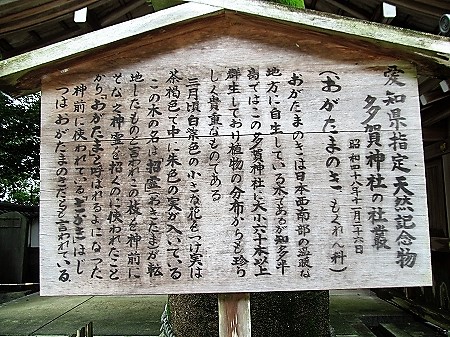 愛知県指定天然記念物
多賀神社の社叢
昭和四十八年十一月二十六日
(おがたまのき、もくれん科)
おがたまのきは日本西南部の温暖な
地方に自生している木であるが知多半
島ではこの多賀神社に大小六十本以上
群生しており植物の分布からも珍ら
しく貴重なものである
三月頃白紫色の小さな花をつけ実は
茶褐色で中に朱色の実が入いている
この木の名は招霊(おきたま)が転
地したものと言われこの枝を神前に
そなえ神霊を招くのに使われたこと
から「おがたま」と呼ばれるようになった
神前に使われている「さかき」はじ
つはおがたまの木だとも言われている